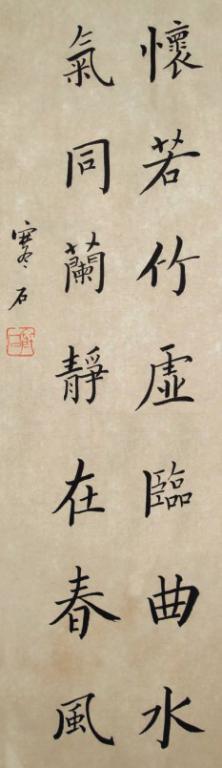 懷若竹虛臨曲水
氣同蘭靜在春風
寒石